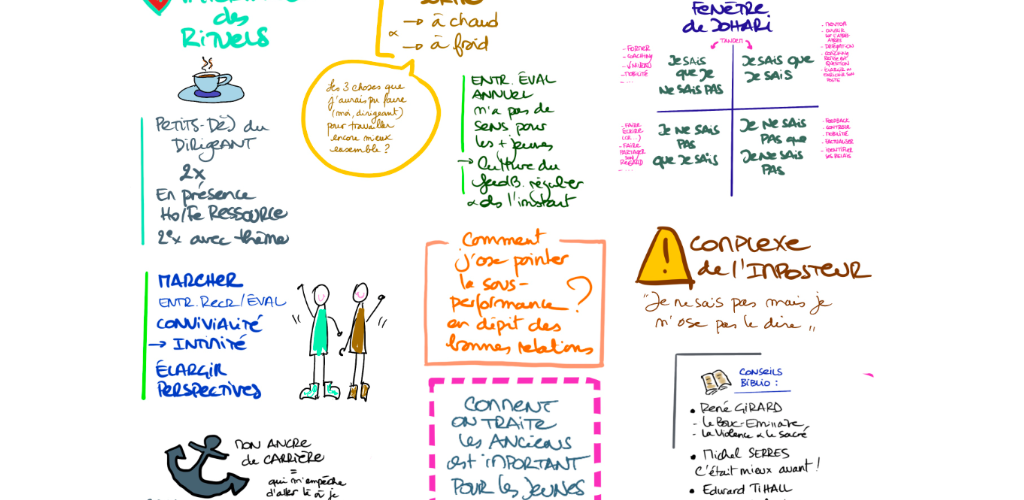 des
RITUELS
PETITS-DEJ du
DIRIGEANT
2x
En présence
Ho/Fe RESSOURCE
2e x avec thème
MARCHER
ENTR. RECR/ÉVAL
CONVIVIALITÉ
→ INTIMITÉ
ÉLARGIR
PERSPECTIVES
MON ANCRE
de CARRIÈRE
=
qui m'empêche
d'aller là où je
→ à chaud
→ à froid
Les 3 choses que
j'aurais pu faire
(moi, dirigeant)
pour travailler
encore mieux
ensemble ?
ENTR. ÉVAL
ANNUEL
n'a pas de
SENS pour
les + jeunes
→ Culture du
feedB. régulier
ds l'instant
Comment
j'ose pointer
la sous-
performance ?
en dépit des
bonnes relations
COMMENT
ON TRAITE
les ANCIENS
est IMPORTANT
POUR les JEUNES
FENÊTRE
de JOHARI
TANDEM
- FORMER
- COACHING
JE SAIS
QUE JE
NE SAIS PAS
JE SAIS QUE
JE SAIS
- MENTOR
- DÉLÉGATION
- COACHING
QUESTION
POSTE
- FAIRE
ÉCRIRE
- FAIRE
PARTAGER
SON
REGARD
JE NE SAIS
PAS
QUE JE SAIS
JE NE SAIS
PAS QUE
JE NE SAIS
PAS
- FEEDBACK
- CONTRÔLE
- IDENTIFIER
LES RELAIS
! COMPLEXE
de l'IMPOSTEUR
"Je ne sais pas mais je
n'ose pas le dire"
CONSEILS
BIBLIO :
• René GIRARD
- Le Bouc-Emissaire
- La Violence & le Sacré
• Michel SERRES
C'était mieux avant !
• Edward T HALL